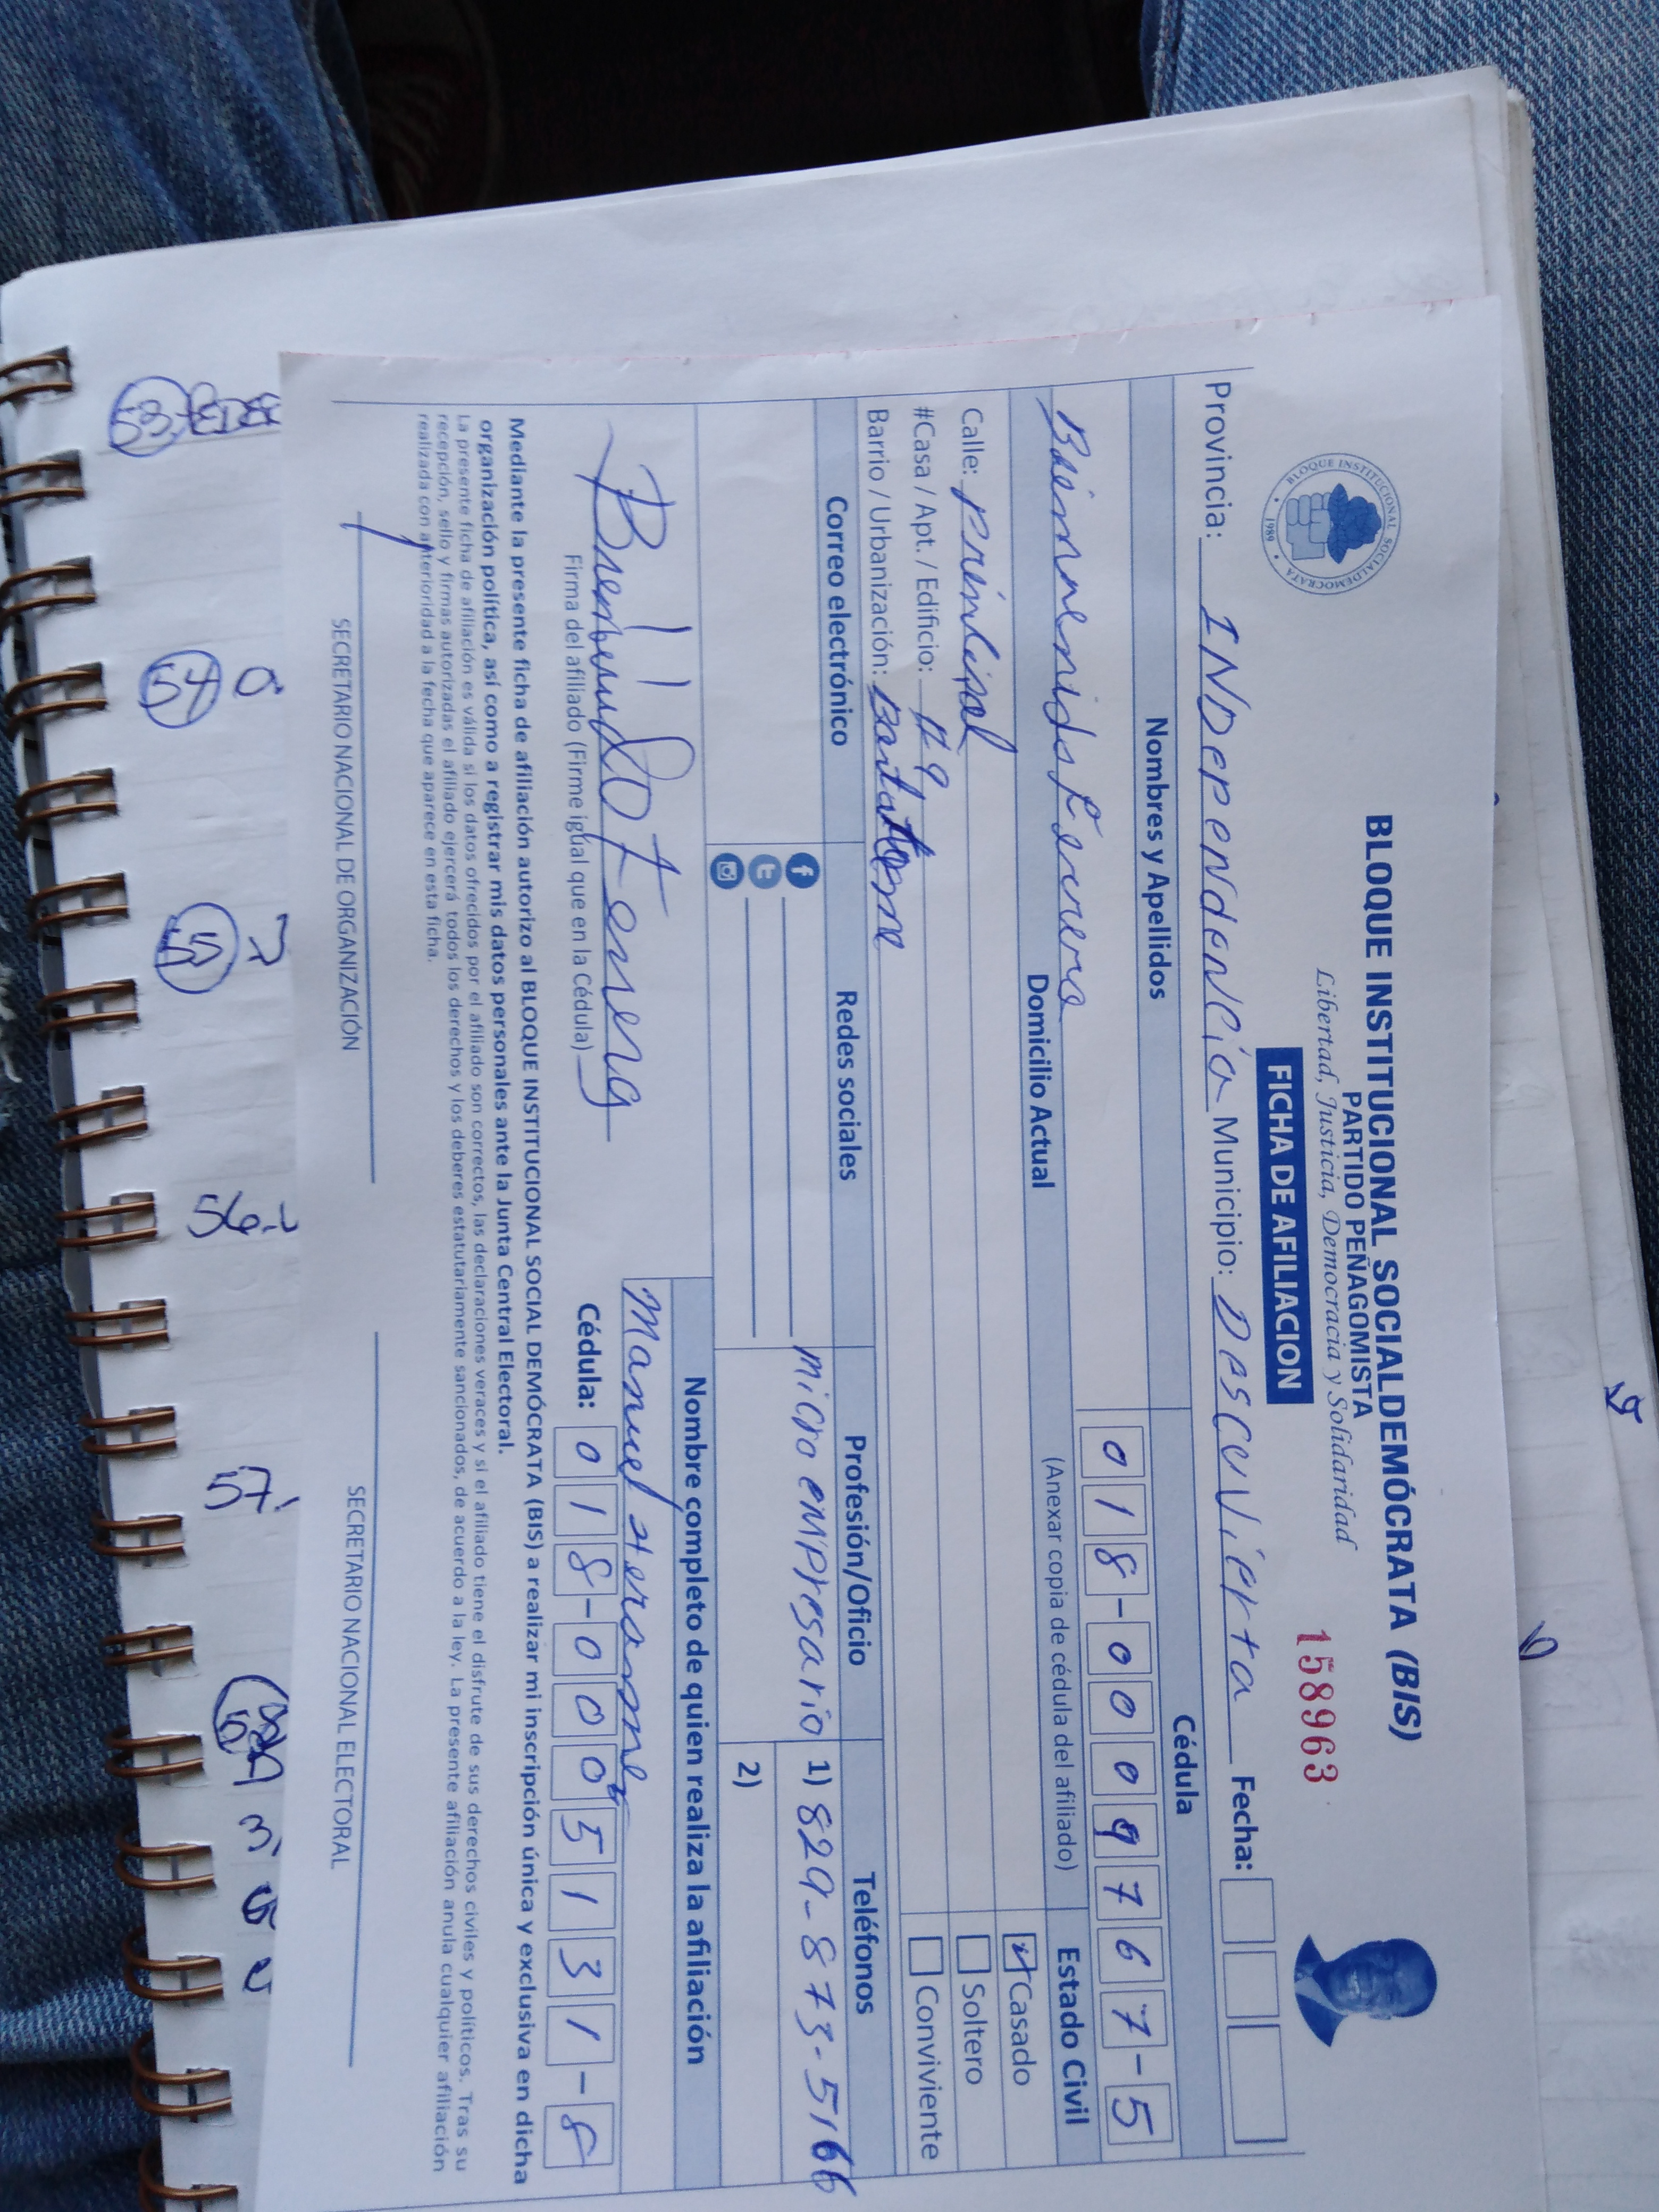 BLOQUE INSTITUCIONAL SOCIALDEMÓCRATA (BIS)
PARTIDO PEÑAGOMISTA
Libertad, Justicia, Democracia y Solidaridad
BLOQUE INSTITUCIONAL SOCIALDEMOCRATA
1989
FICHA DE AFILIACION
158963
Provincia: INDependencia Municipio: DescuVierta Fecha:
Nombres y Apellidos Cédula
Bienvenido 018-0009767-5
Domicilio Actual (Anexar copia de cédula del afiliado) Estado Civil
Calle: principal Casado
#Casa / Apt. / Edificio: #9 Soltero
Barrio / Urbanización: Conviviente
Correo electrónico Redes sociales Profesión/Oficio Teléfonos
micro empresario 1) 829-873-5166
2)
Nombre completo de quien realiza la afiliación
Manuel
Firma del afiliado (Firme igual que en la Cédula) Cédula: 018-0005131-8
Mediante la presente ficha de afiliación autorizo al BLOQUE INSTITUCIONAL SOCIAL DEMÓCRATA (BIS) a realizar mi inscripción única y exclusiva en dicha
organización política, así como a registrar mis datos personales ante la Junta Central Electoral.
La presente ficha de afiliación es válida si los datos ofrecidos por el afiliado son correctos, las declaraciones veraces y si el afiliado tiene el disfrute de sus derechos civiles y políticos. Tras su
recepción, sello y firmas autorizadas el afiliado ejercerá todos los derechos y los deberes estatutariamente sancionados, de acuerdo a la ley. La presente afiliación anula cualquier afiliación
realizada con anterioridad a la fecha que aparece en esta ficha.
SECRETARIO NACIONAL DE ORGANIZACIÓN SECRETARIO NACIONAL ELECTORAL
53
54
55
56
57